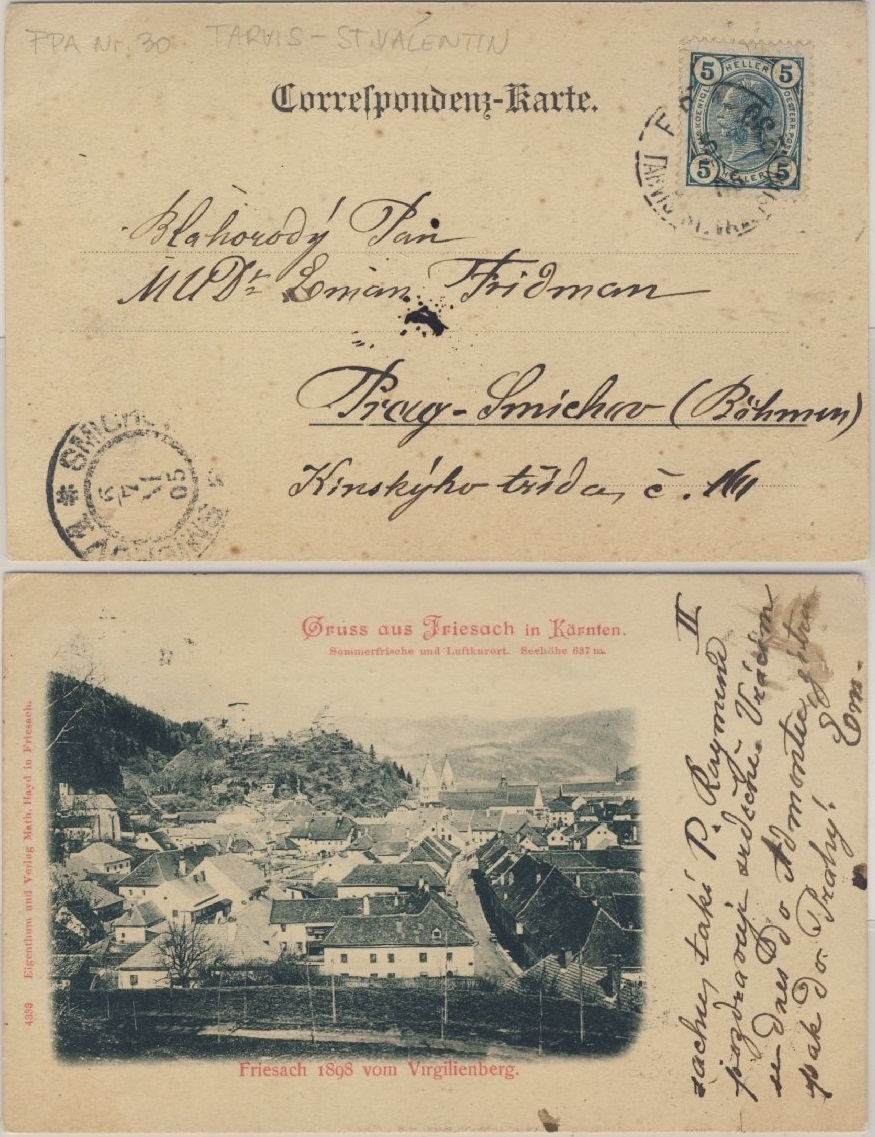 FPA Nr. 30 TARVIS – ST. VALENTIN
Correspondenz-Karte.
5 HELLER 5
5 HELLER 5
TARVIS
Blahorodý Pan
MUDr Eman. Fridman
Prag-Smichov (Böhmen)
Kinskýho třída, č.
SMICHOV
6
4
VI
05
II
Gruss aus Friesach in Kärnten.
Sommerfrische und Luftkurort. Seehöhe 637 m.
4333 Eigenthum und Verlag Math. Hayd in Friesach.
Friesach 1898 vom Virgilienberg.
také P. Raymund
pozdravuje srdečně. Vrácím
se dnes do Admontu, zítra
pak do Prahy!
Em-